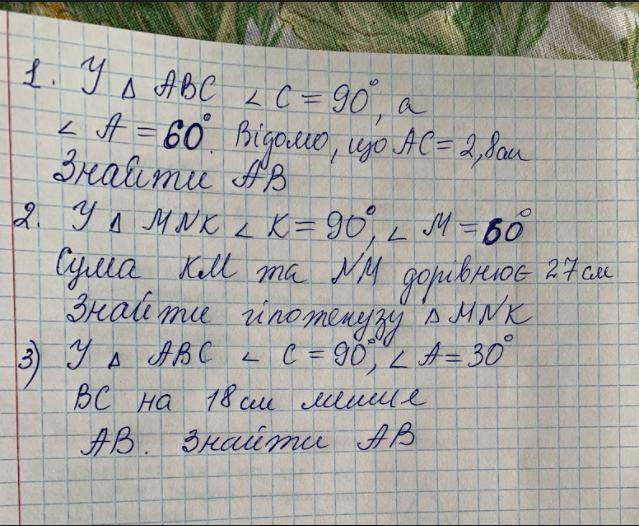 1. У △ ABC ∠ C = 90°, а
∠ A = 60°. Відомо, що AC = 2,8 см
Знайти AB
2. У △ MNK ∠ K = 90°, ∠ M = 60°
Сума KM та NM дорівнює 27 см
Знайти гіпотенузу △ MNK
3) У △ ABC ∠ C = 90°, ∠ A = 30°
BC на 18 см менше
AB. Знайти AB